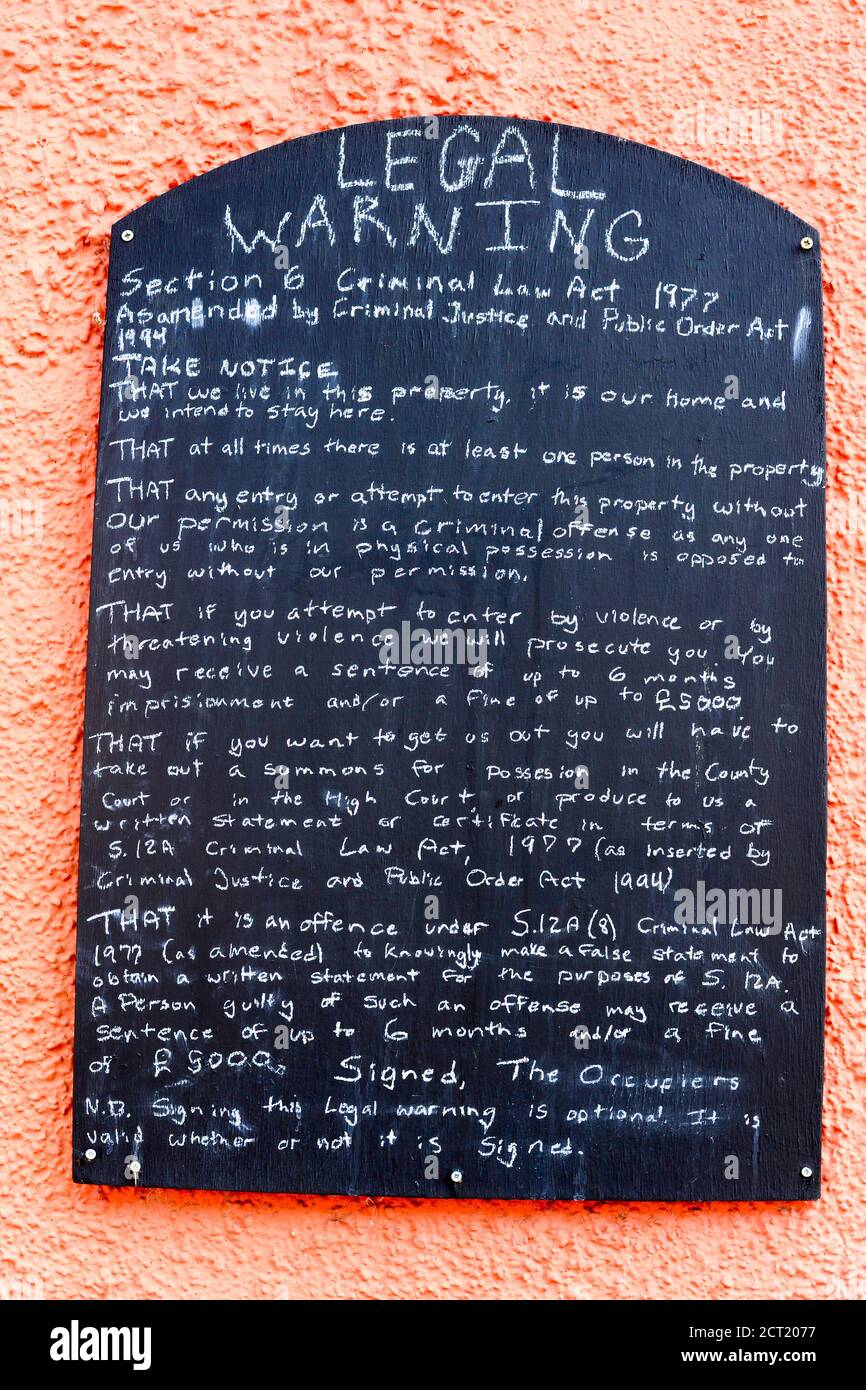 LEGAL
WARNING
Section 6 Criminal Law Act 1977
As amended by Criminal Justice and Public Order Act
1994
TAKE NOTICE
THAT we live in this property, it is our home and
we intend to stay here.
THAT at all times there is at least one person in the property
THAT any entry or attempt to enter this property without
our permission is a criminal offense as any one
of us who is in physical possession is opposed to
entry without our permission.
THAT if you attempt to enter by violence or by
threatening violence we will prosecute you. You
may receive a sentence of up to 6 months
imprisionment and/or a fine of up to £5000
THAT if you want to get us out you will have to
take out a summons for possesion in the County
Court or in the High Court, or produce to us a
written statement or certificate in terms of
S.12A Criminal Law Act, 1977 (as inserted by
Criminal Justice and Public Order Act 1994)
THAT it is an offence under S.12A(8) Criminal Law Act
1977 (as amended) to knowingly make a false statement to
obtain a written statement for the purposes of S. 12A.
A Person guilty of such an offense may receive a
sentence of up to 6 months and/or a fine
of £5000.
Signed, The Occupiers
N.B. Signing this Legal warning is optional. It is
valid whether or not it is signed.
alamy
Image ID: 2CT2077
www.alamy.com